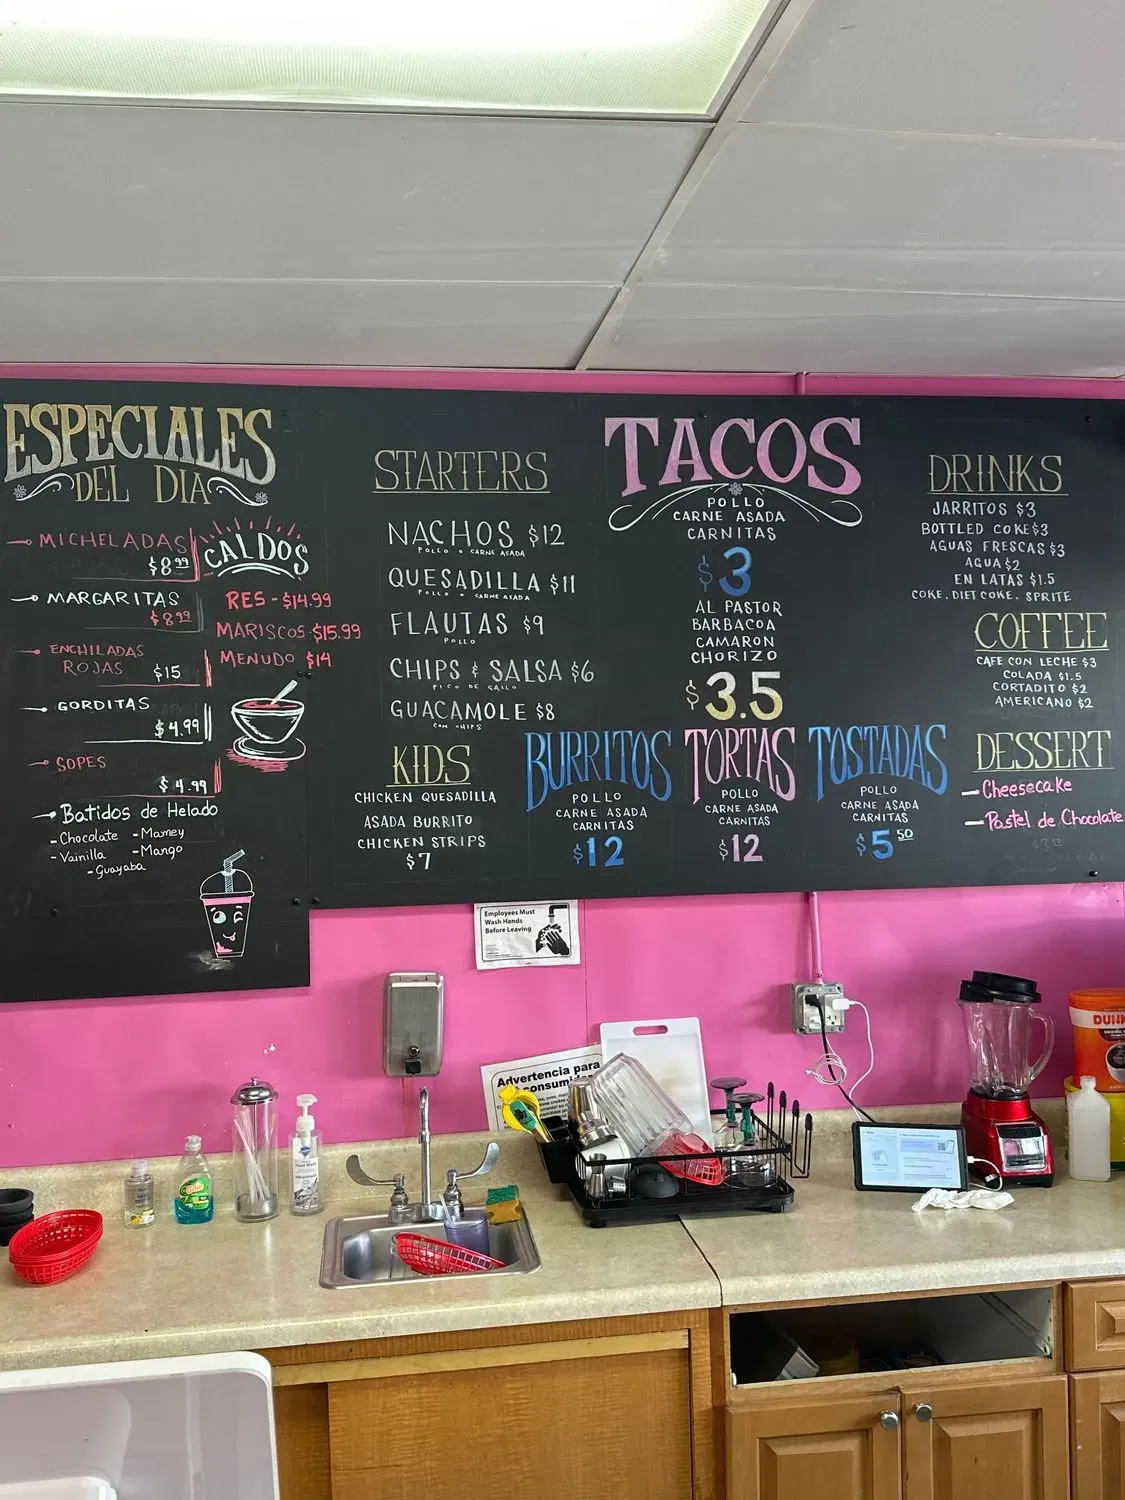 ESPECIALES
DEL DIA
MICHELADAS
$8.99
MARGARITAS
$8.99
ENCHILADAS
ROJAS $15
GORDITAS
$4.99
SOPES
$4.99
Batidos de Helado
- Chocolate - Mamey
- Vainilla - Mango
- Guayaba
CALDOS
RES - $14.99
MARISCOS - $15.99
MENUDO $14
STARTERS
NACHOS $12
POLLO O CARNE ASADA
QUESADILLA $11
POLLO O CARNE ASADA
FLAUTAS $9
POLLO
CHIPS & SALSA $6
PICO DE GALLO
GUACAMOLE $8
CON CHIPS
KIDS
CHICKEN QUESADILLA
ASADA BURRITO
CHICKEN STRIPS
$7
TACOS
POLLO
CARNE ASADA
CARNITAS
$3
AL PASTOR
BARBACOA
CAMARON
CHORIZO
$3.5
BURRITOS
POLLO
CARNE ASADA
CARNITAS
$12
TORTAS
POLLO
CARNE ASADA
CARNITAS
$12
TOSTADAS
POLLO
CARNE ASADA
CARNITAS
$5.50
DRINKS
JARRITOS $3
BOTTLED COKE $3
AGUAS FRESCAS $3
AGUA $2
EN LATAS $1.5
COKE, DIET COKE, SPRITE
COFFEE
CAFE CON LECHE $3
COLADA $1.5
CORTADITO $2
AMERICANO $2
DESSERT
- Cheesecake
- Pastel de Chocolate
Employees Must
Wash Hands
Before Leaving
Advertencia para
consumi
DUNK